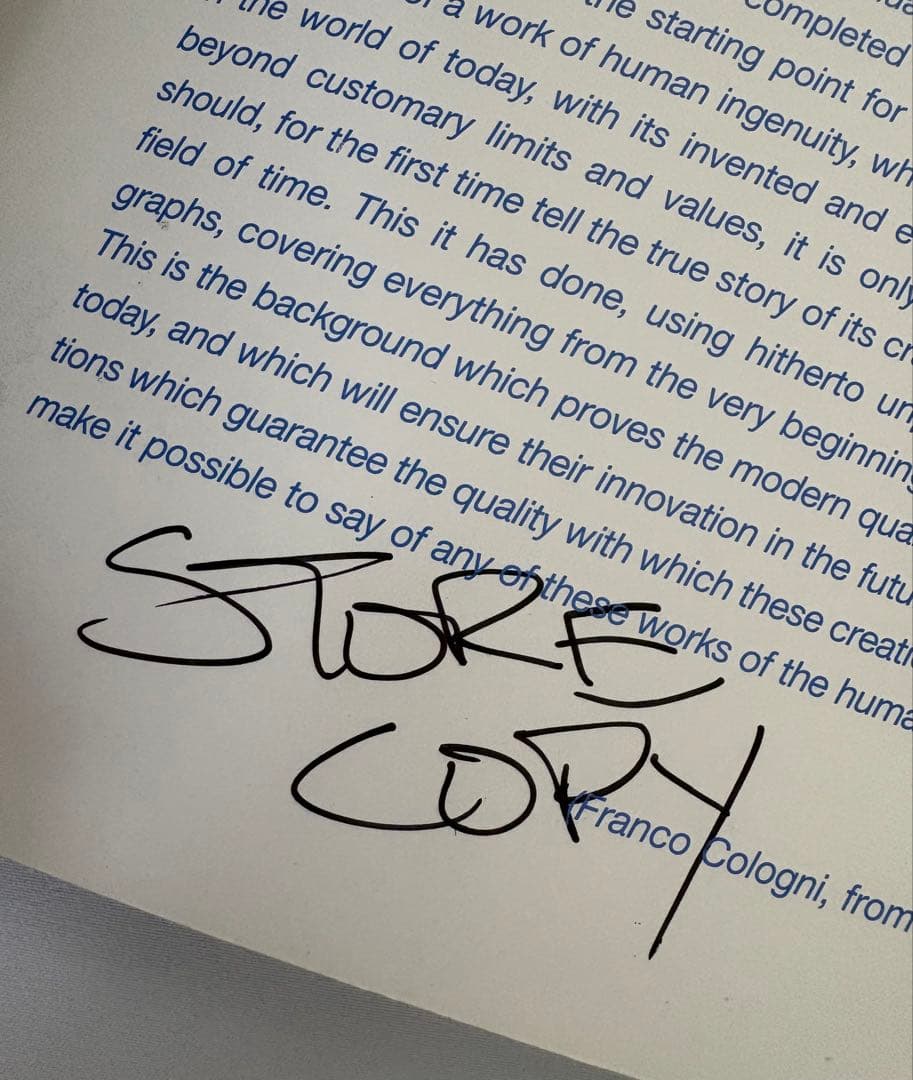 completed
the starting point for
a work of human ingenuity,
the world of today, with its invented and
beyond customary limits and values, it is only
should, for the first time tell the true story of its
field of time. This it has done, using hitherto
graphs, covering everything from the very beginning
This is the background which proves the modern
today, and which will ensure their innovation in the
tions which guarantee the quality with which these
make it possible to say of any of these works of the
STORE
COPY
(Franco Cologni, from